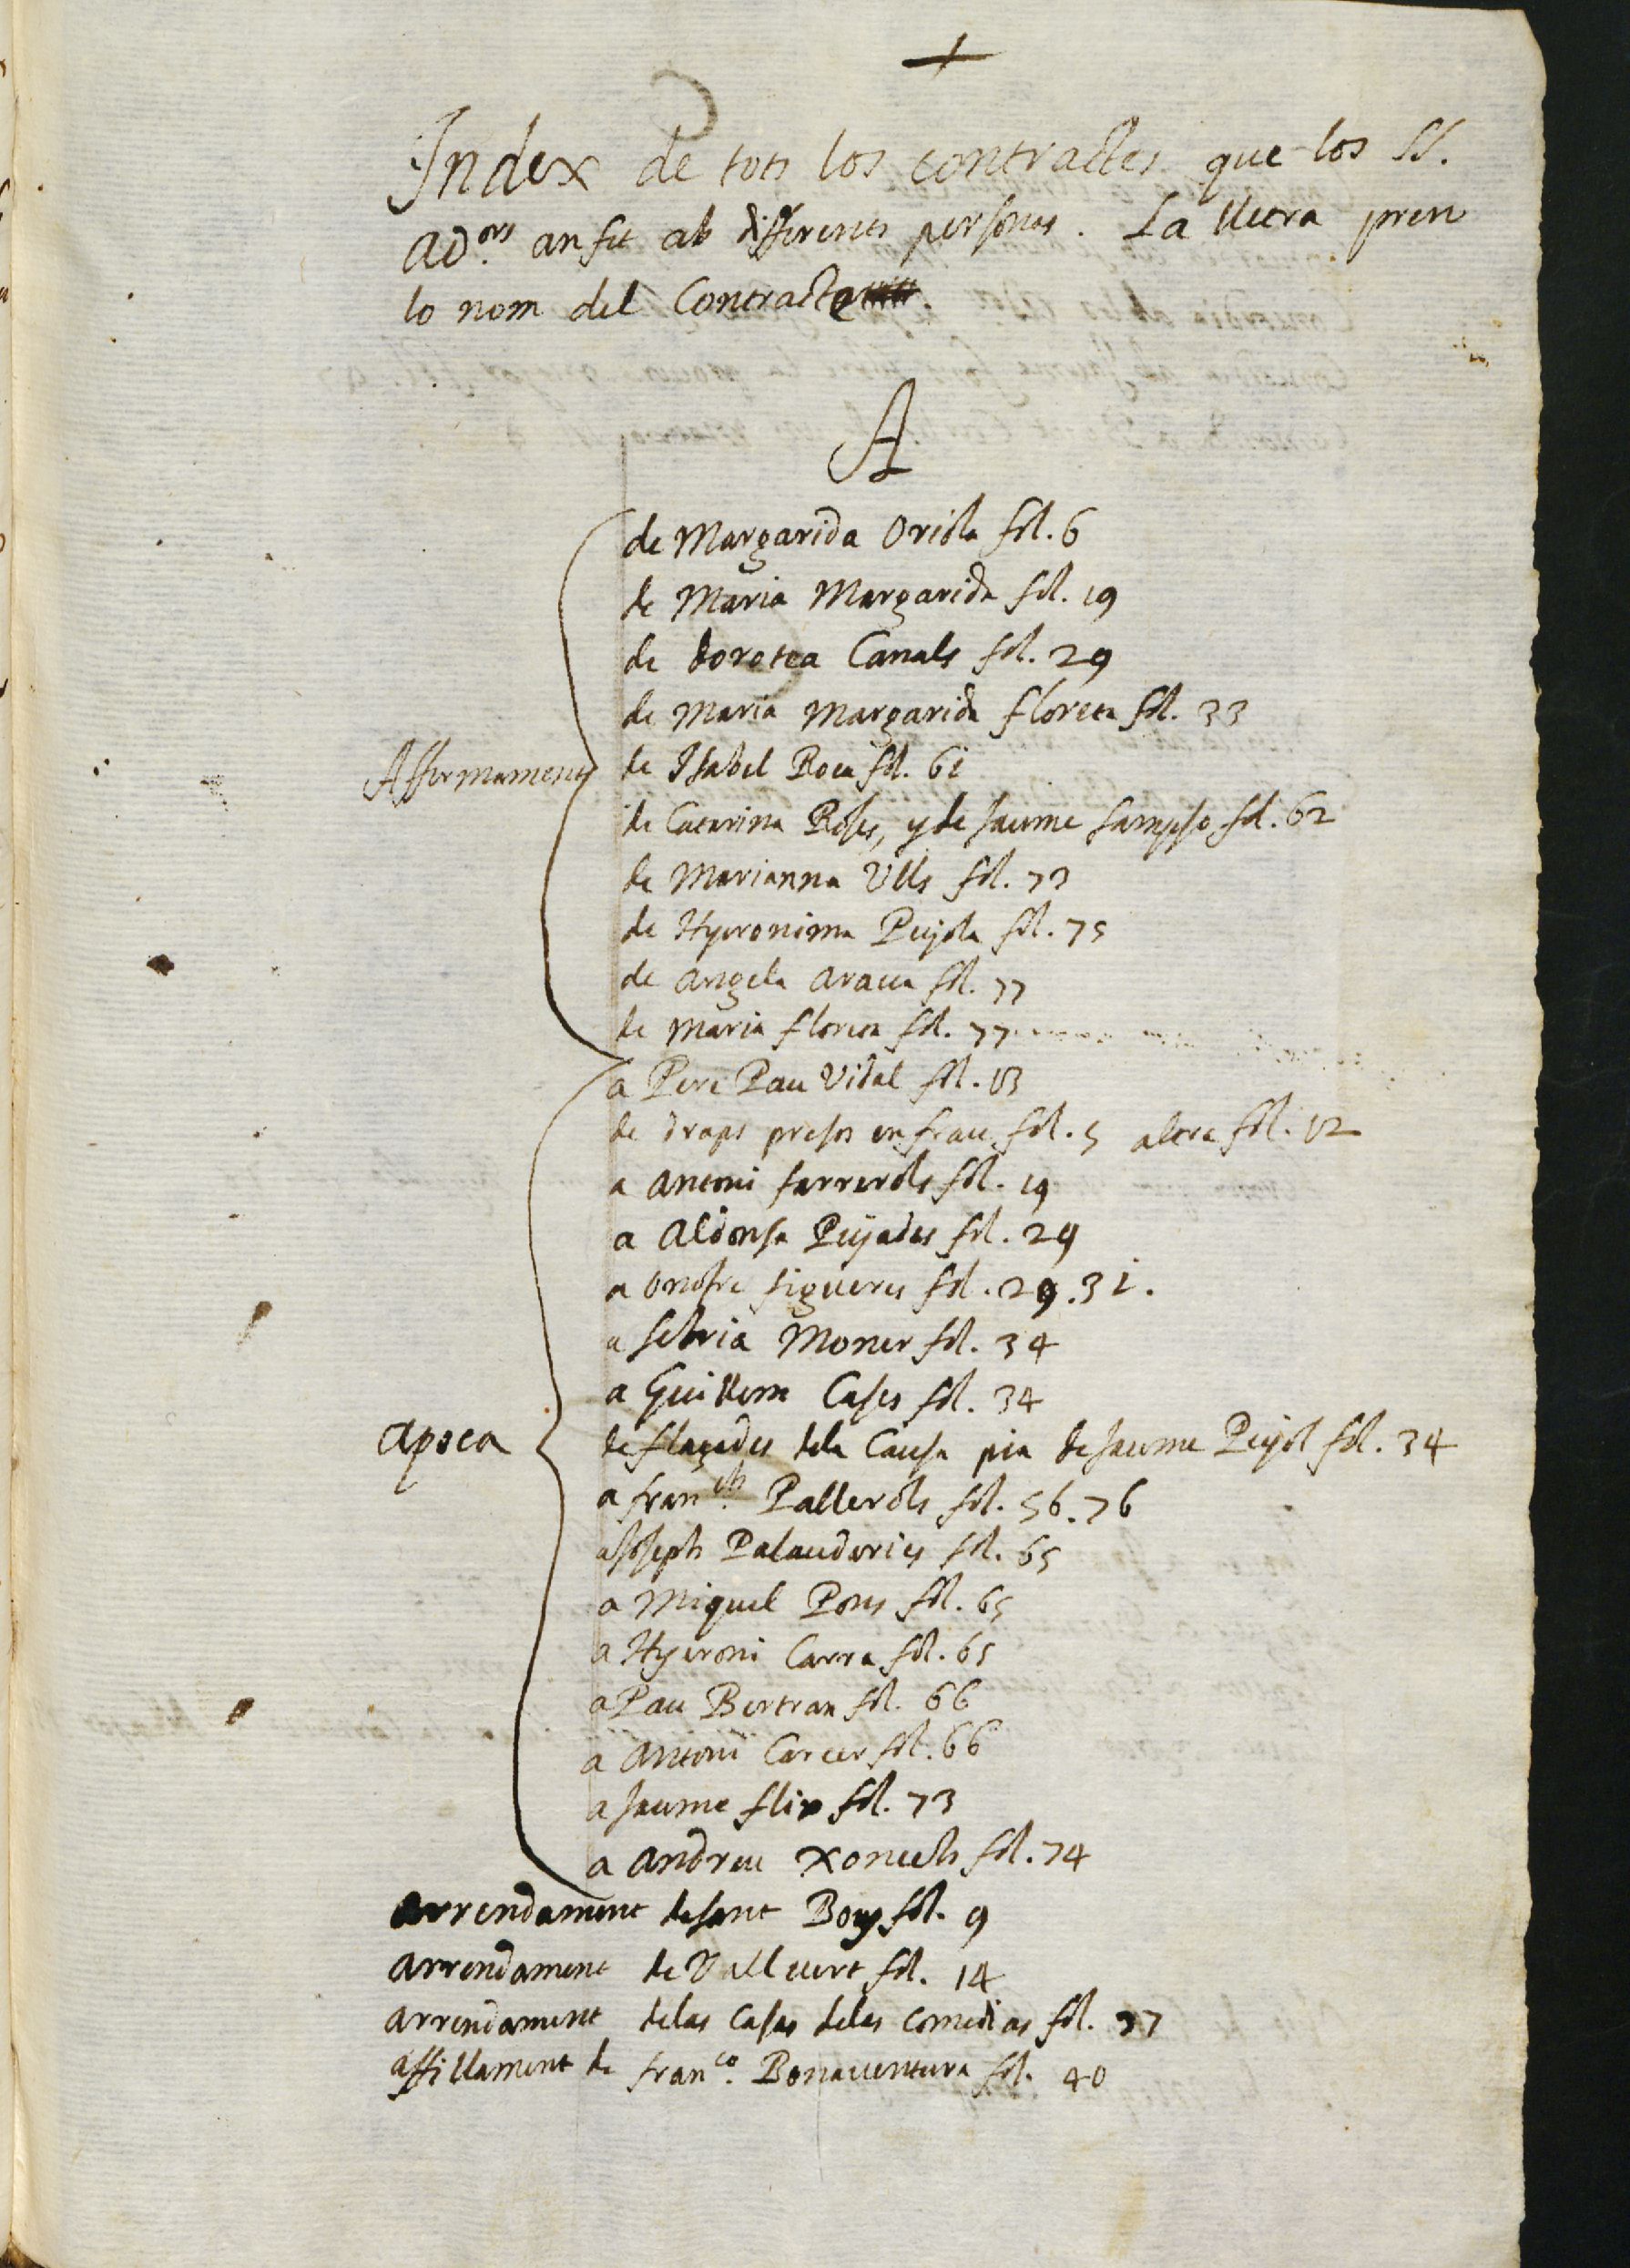 +
Index de tots los contractes que los SS.
Ad.ors an fet ab differents personas. La lletra pren
lo nom del Contracte
A
de Margarida Oriola fol. 6
de Maria Margarida fol. 19
de dorotea Canals fol. 29
de Maria Margarida floreta fol. 33
Affermaments
de Isabel Roca fol. 61
de Catarina Roses, y de Jaume Sampso fol. 62
de Marianna Ulls fol. 73
de Hyeronima Pujola fol. 75
de Angela Araua fol. 77
de Maria floreta fol. 77
a Pere Pau Vidal fol. 13
de draps presos en frau fol. 5 altre fol. 12
a Antoni Sarrerols fol. 19
a Aldonsa Pujades fol. 29
a Onofre figueres fol. 29. 31.
a Sebria Moner fol. 34
a Guillem Cases fol. 34
Apoca
de flaçades dela Causa pia de Jaume Pujol fol. 34
a fran.ch Pallerols fol. 56. 76
a Joseph Palauderies fol. 65
a Miquel Pons fol. 65
a Hyeroni Carra fol. 65
a Pau Bertran fol. 66
a Antoni Carcer fol. 66
a Jaume flix fol. 73
a Andreu Xonech fol. 74
Arrendament de sant Boy fol. 9
Arrendament de Vallvert fol. 14
Arrendament delas Casas deles Comedias fol. 37
affillament de fran.co Bonaventura fol. 40